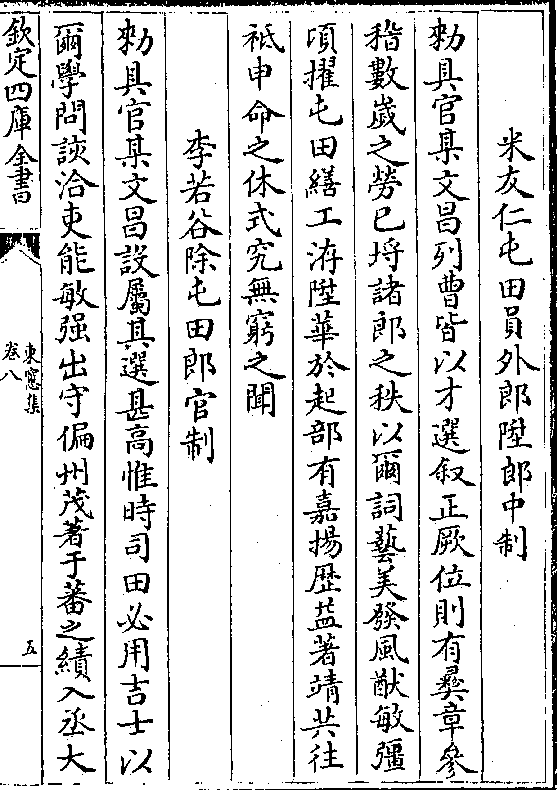 米友仁屯田員外郎陞郎中制
勑具官某文昌列曹皆以才選叙正厥位則有彞章參
稽數歲之勞已埓諸郎之秩以爾詞藝美發風猷敏彊
頃擢屯田繕工洊陞華於起部有嘉揚歴益著靖共往
祗申命之休式究無窮之聞
李若谷除屯田郎官制
勑具官某文昌設屬其選甚高惟時司田必用吉士以
爾學問該洽吏能敏强出守偏州茂著于蕃之績入丞大
欽定四庫全書
東窻集
卷八
五